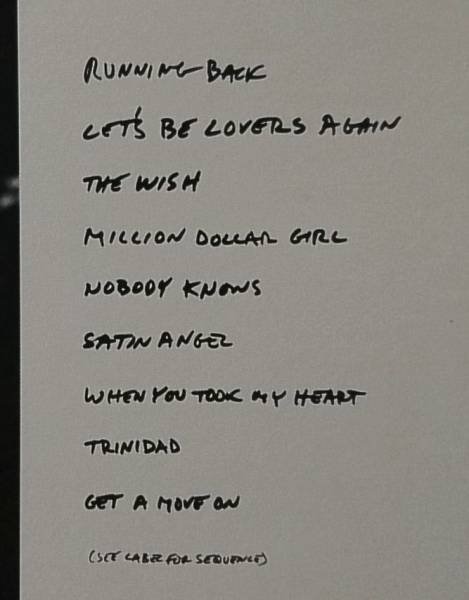 RUNNING BACK
LET'S BE LOVERS AGAIN
THE WISH
MILLION DOLLAR GIRL
NOBODY KNOWS
SATIN ANGEL
WHEN YOU TOOK MY HEART
TRINIDAD
GET A MOVE ON
(SEE LABEL FOR SEQUENCE)